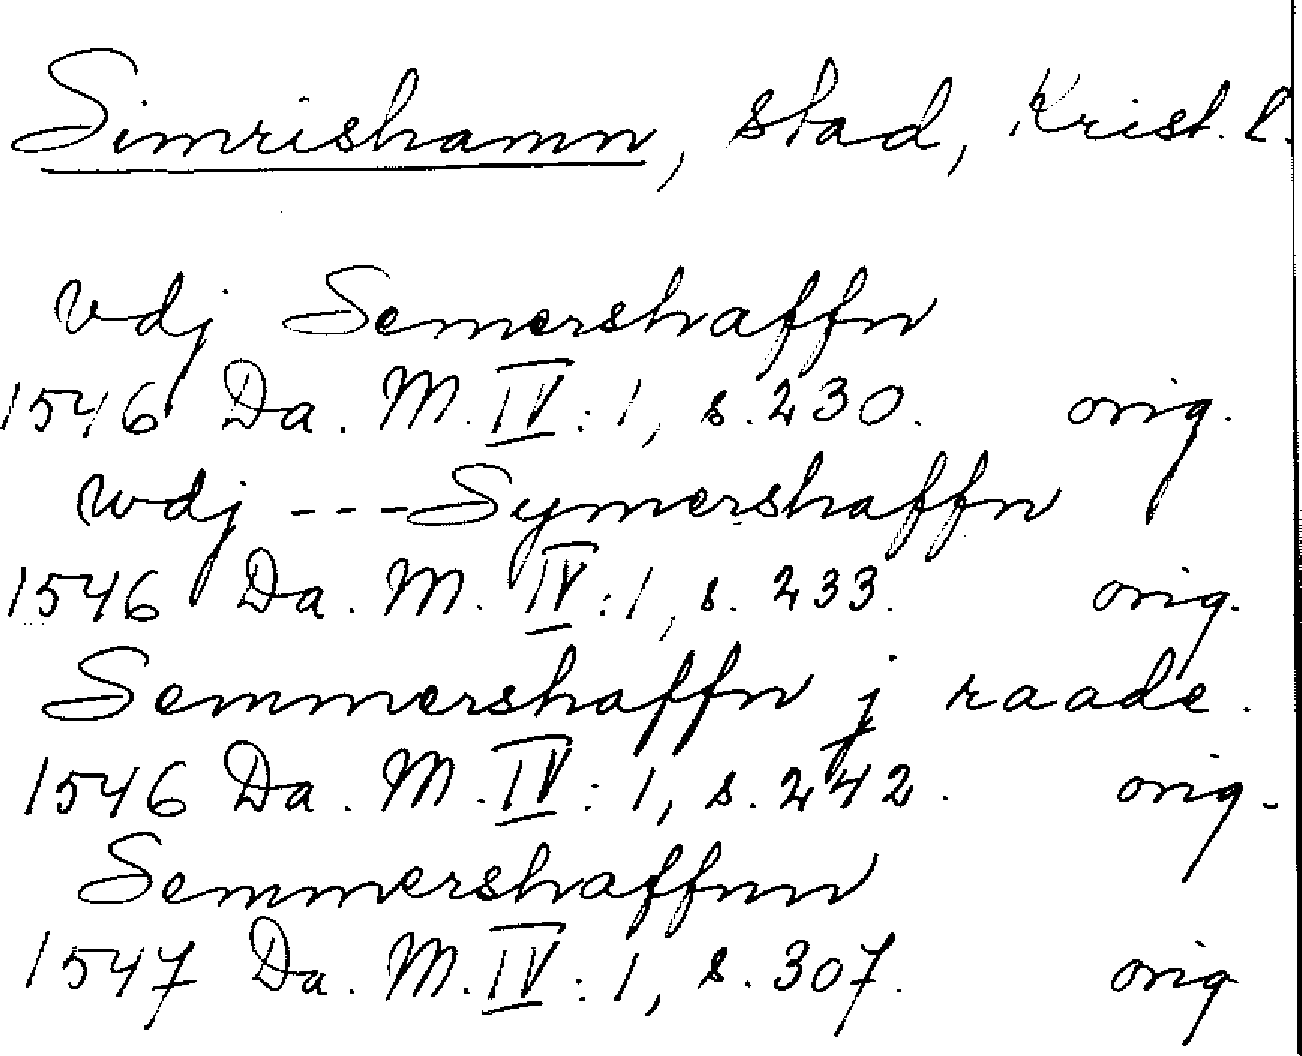 Simrishamn, stad, Krist. l.
vdj Semershaffn
1546 Da. M. IV: 1, s. 230. orig.
wdj --- Symershaffn
1546 Da. M. IV: 1, s. 233. orig.
Semmershaffn j raade.
1546 Da. M. IV: 1, s. 242. orig.
Semmershaffnn
1547 Da. M. IV: 1, s. 307. orig